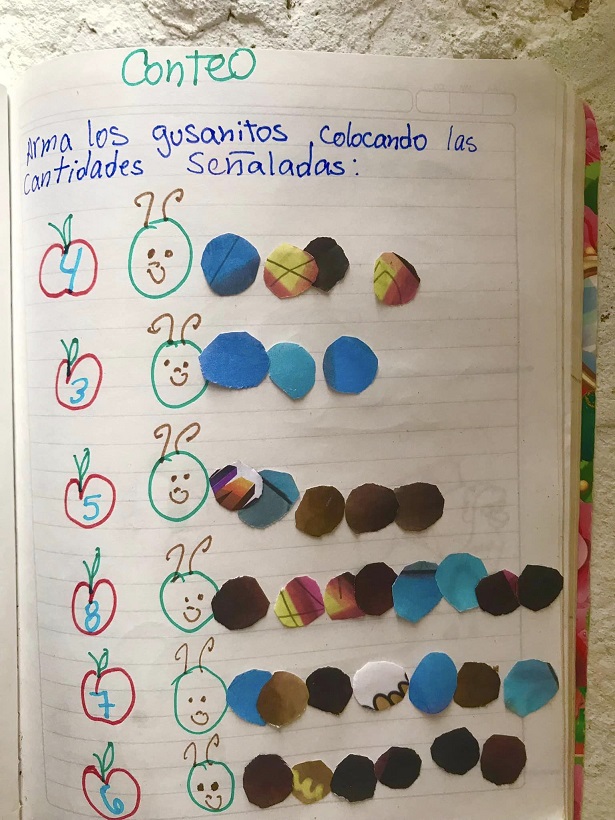 Conteo
Arma los gusanitos, colocando las
cantidades señaladas:
4
3
5
8
7
6